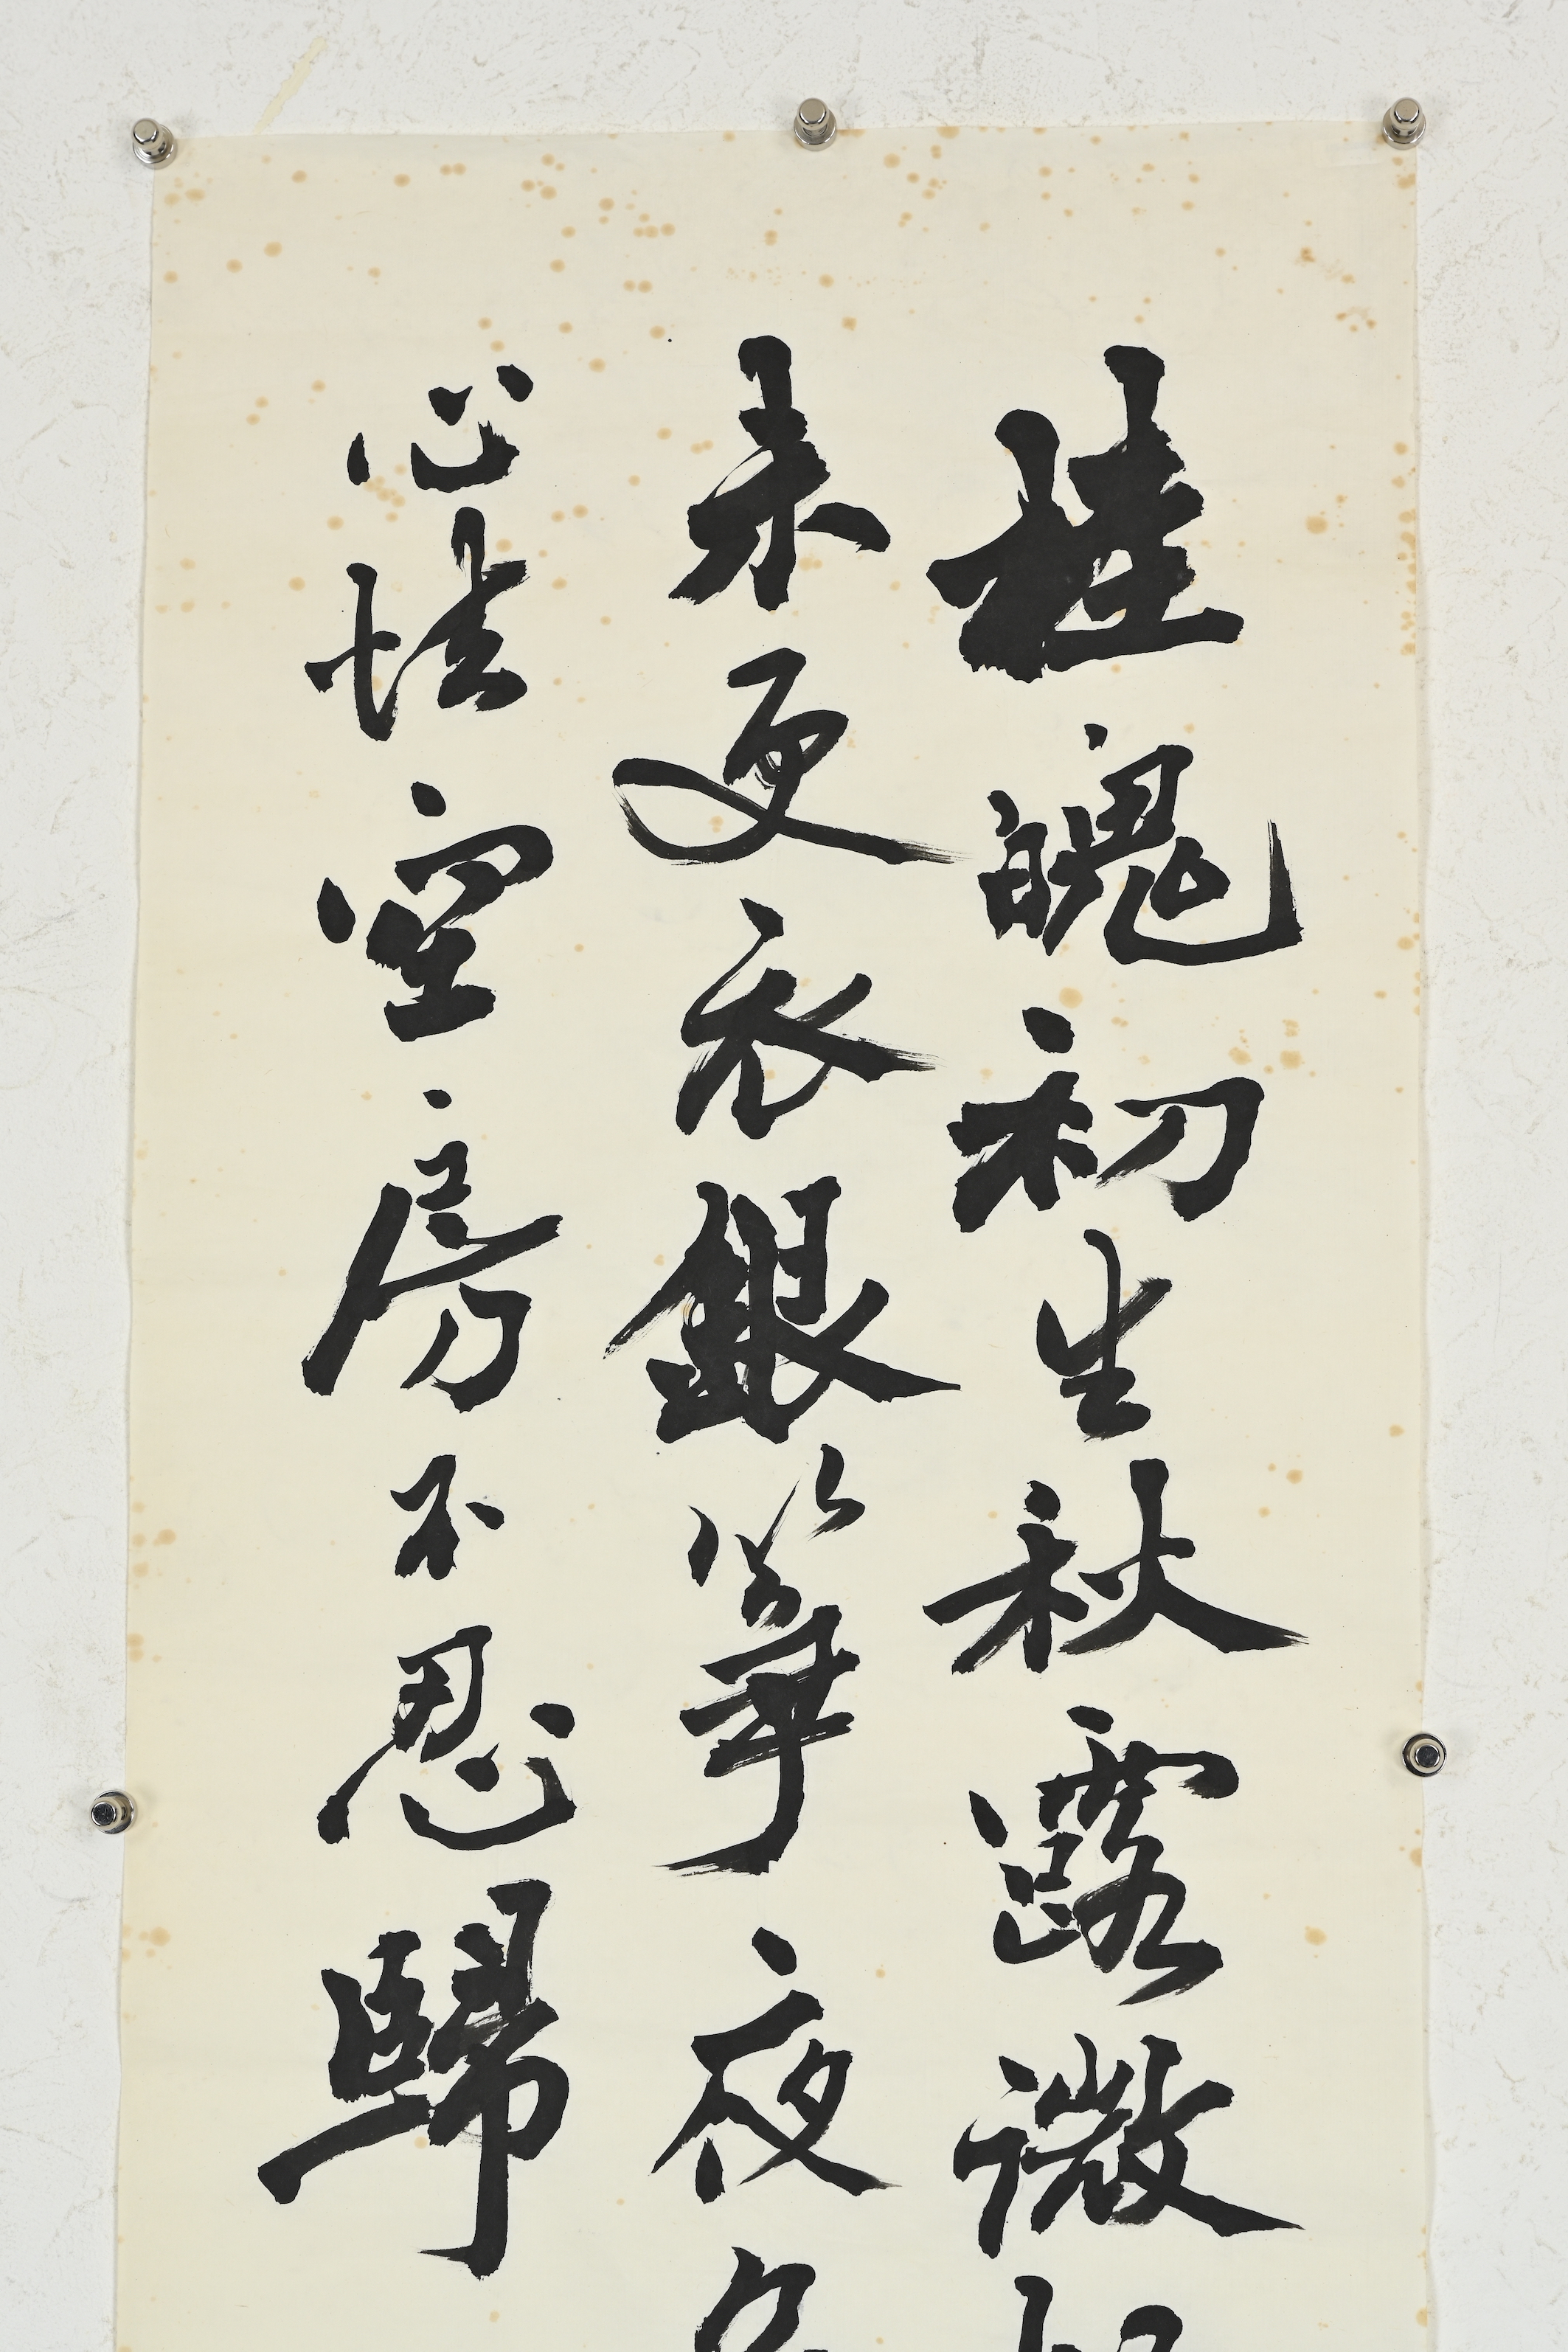 桂魄初生秋露微
未更衣銀箏夜
心怯空房不忍歸